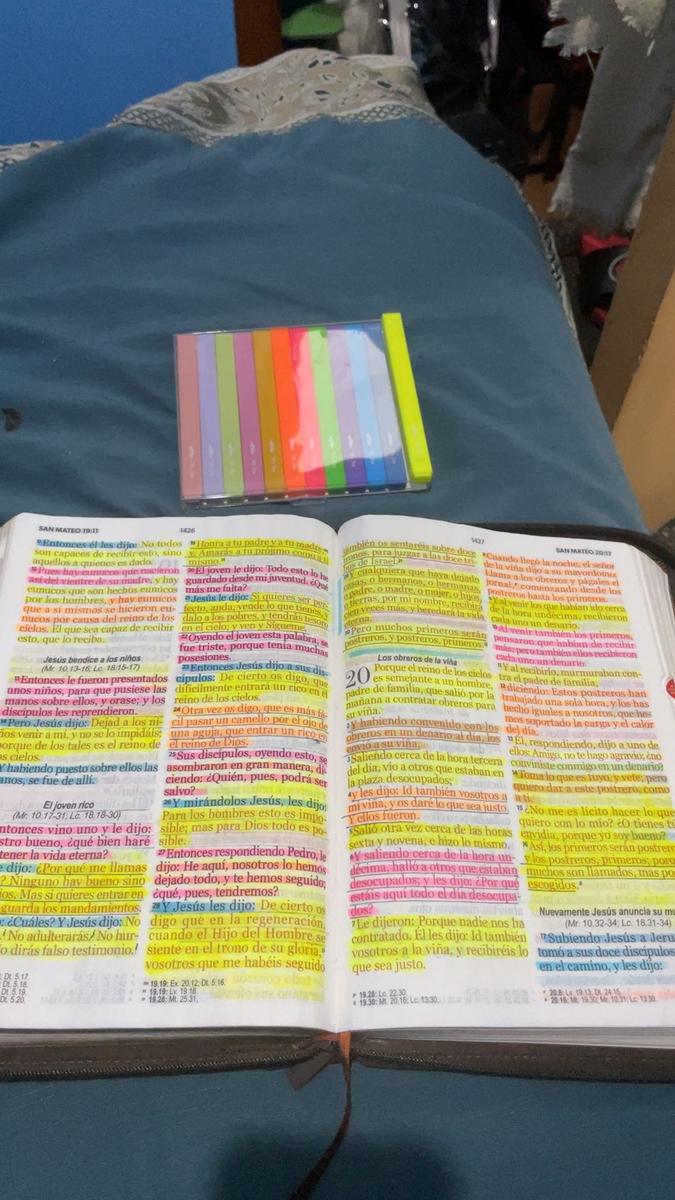 SAN MATEO 19:11
1426
Entonces él les dijo: No todos
son capaces de recibir esto, sino
aquellos a quienes es dado.
Pues hay eunucos que nacieron
así del vientre de su madre, y hay
eunucos que son hechos eunucos
por los hombres, y hay eunucos
que a sí mismos se hicieron eu-
nucos por causa del reino de los
cielos. El que sea capaz de recibir
esto, que lo reciba.
Jesús bendice a los niños
(Mr. 10.13-16; Lc. 18.15-17)
Entonces le fueron presentados
unos niños, para que pusiese las
manos sobre ellos, y orase; y los
discípulos les reprendieron.
Pero Jesús dijo: Dejad a los ni-
ños venir a mí, y no se lo impidáis;
porque de los tales es el reino de
os cielos.
Y habiendo puesto sobre ellos las
anos, se fue de allí.
El joven rico
(Mr. 10.17-31; Lc. 18.18-30)
ntonces vino uno y le dijo:
stro bueno, ¿qué bien haré
tener la vida eterna?
e dijo: ¿Por qué me llamas
? Ninguno hay bueno sino
os. Mas si quieres entrar en
guarda los mandamientos.
o: ¿Cuáles? Y Jesús dijo: No
No adulterarás. No hur-
o dirás falso testimonio.
Dt. 5.17.
Dt. 5.18.
Dt. 5.19.
Dt. 5.20.
Honra a tu padre y a tu madre;
y, Amarás a tu prójimo como a ti
mismo.
20 El joven le dijo: Todo esto lo he
guardado desde mi juventud. ¿Qué
más me falta?
Jesús le dijo: Si quieres ser per-
fecto, anda, vende lo que tienes, y
dalo a los pobres, y tendrás tesoro
en el cielo; y ven y sígueme.
22 Oyendo el joven esta palabra, se
fue triste, porque tenía muchas
posesiones.
23 Entonces Jesús dijo a sus dis-
cípulos: De cierto os digo, que
difícilmente entrará un rico en el
reino de los cielos.
24 Otra vez os digo, que es más fá-
cil pasar un camello por el ojo de
una aguja, que entrar un rico en
el reino de Dios.
25 Sus discípulos, oyendo esto, se
asombraron en gran manera, di-
ciendo: ¿Quién, pues, podrá ser
salvo?
26 Y mirándolos Jesús, les dijo:
Para los hombres esto es impo-
sible; mas para Dios todo es po-
sible.
27 Entonces respondiendo Pedro, le
dijo: He aquí, nosotros lo hemos
dejado todo, y te hemos seguido;
¿qué, pues, tendremos?
28 Y Jesús les dijo: De cierto os
digo que en la regeneración,
cuando el Hijo del Hombre se
siente en el trono de su gloria,
vosotros que me habéis seguido
19.19: Ex. 20.12; Dt. 5.16.
19.19: Lv. 19.18.
19.28: Mt. 25.31.
1427
SAN MATEO 20:17
también os sentaréis sobre doce
tronos, para juzgar a las doce tri-
bus de Israel.
Y cualquiera que haya dejado
casas, o hermanos, o hermanas,
o padre, o madre, o mujer, o hijos,
o tierras, por mi nombre, recibirá
cien veces más, y heredará la vida
eterna.
30 Pero muchos primeros serán
postreros, y postreros, primeros.
Los obreros de la viña
20 Porque el reino de los cielos
es semejante a un hombre,
padre de familia, que salió por la
mañana a contratar obreros para
su viña.
2 Y habiendo convenido con los
obreros en un denario al día, los
envió a su viña.
3 Saliendo cerca de la hora tercera
del día, vio a otros que estaban en
la plaza desocupados;
4 y les dijo: Id también vosotros a
mi viña, y os daré lo que sea justo.
Y ellos fueron.
5 Salió otra vez cerca de las horas
sexta y novena, e hizo lo mismo.
6 Y saliendo cerca de la hora un-
décima, halló a otros que estaban
desocupados; y les dijo: ¿Por qué
estáis aquí todo el día desocupa-
dos?
7 Le dijeron: Porque nadie nos ha
contratado. Él les dijo: Id también
vosotros a la viña, y recibiréis lo
que sea justo.
19.28: Lc. 22.30.
19.30: Mt. 20.16; Lc. 13.30.
Cuando llegó la noche, el señor
de la viña dijo a su mayordomo:
Llama a los obreros y págales el
jornal, comenzando desde los
postreros hasta los primeros.
Y al venir los que habían ido cerca
de la hora undécima, recibieron
cada uno un denario.
Al venir también los primeros,
pensaron que habían de recibir
más; pero también ellos recibieron
cada uno un denario.
Y al recibirlo, murmuraban con-
tra el padre de familia,
diciendo: Estos postreros han
trabajado una sola hora, y los has
hecho iguales a nosotros, que he-
mos soportado la carga y el calor
del día.
Él, respondiendo, dijo a uno de
ellos: Amigo, no te hago agravio; ¿no
conviniste conmigo en un denario?
14 Toma lo que es tuyo, y vete; pero
quiero dar a este postrero, como
a ti.
15 ¿No me es lícito hacer lo que
quiero con lo mío? ¿O tienes tú
envidia, porque yo soy bueno?
16 Así, los primeros serán postreros,
y los postreros, primeros; porque
muchos son llamados, mas pocos
escogidos.
Nuevamente Jesús anuncia su mu
(Mr. 10.32-34; Lc. 18.31-34)
17 Subiendo Jesús a Jeru
tomó a sus doce discípulos
en el camino, y les dijo:
20.8: Lv. 19.13; Dt. 24.15.
20.16: Mt. 19.30; Mr. 10.31; Lc. 13.30.